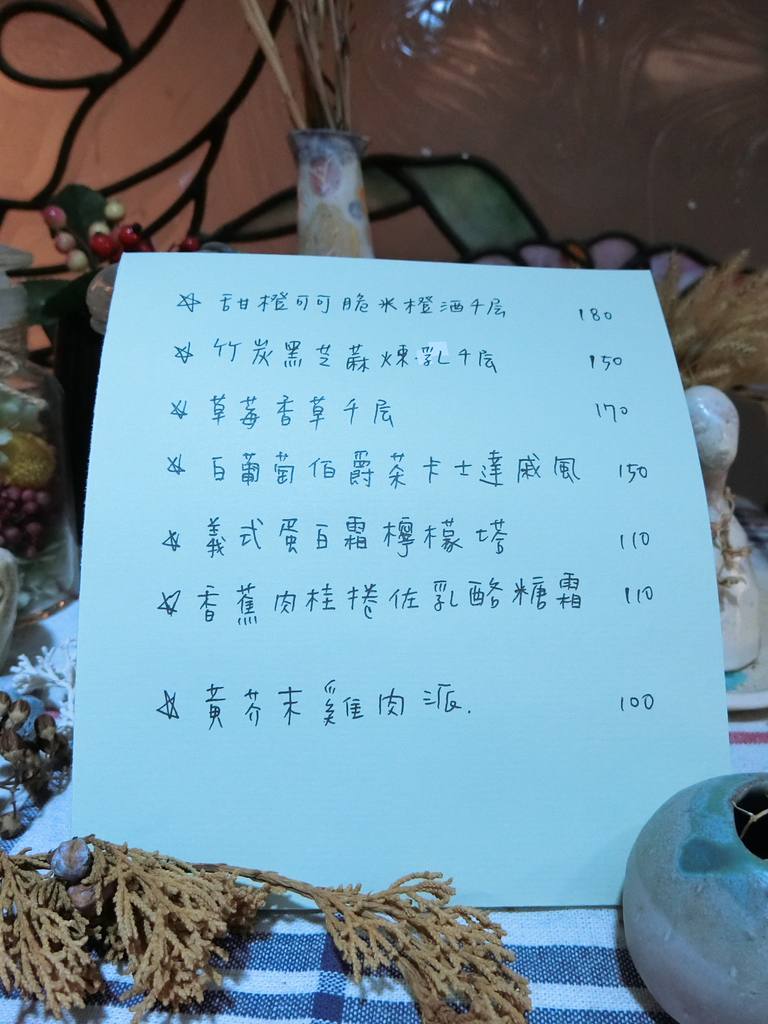 ☆ 甜橙可可脆米橙酒千层 180
☆ 竹炭黑芝蔴煉乳千层 150
☆ 草莓香草千层 170
☆ 白葡萄伯爵茶卡士達戚風 150
☆ 義式蛋白霜檸檬塔 110
☆ 香蕉肉桂捲佐乳酪糖霜 110
☆ 黄芥末雞肉派. 100